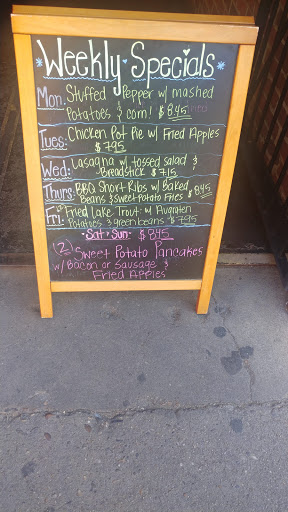 Weekly Specials
Mon: Stuffed Pepper w/ mashed
Potatoes & corn! $8.45
Tues: Chicken Pot Pie w/ Fried Apples
$7.95
Wed: Lasagna w/ tossed salad &
Breadstick $7.15
Thurs: BBQ Short Ribs w/ Baked
Beans & sweet potato Fries $8.45
Fri: Fried Lake Trout w/ Augraten
Potatoes & green beans $7.95
Sat - Sun- $8.45
(2) Sweet Potato Pancakes
w/ Bacon or Sausage &
Fried Apples